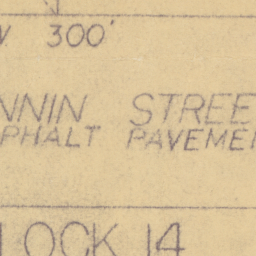 W 300'
NNIN STREE
PHALT PAVEMEN
LOCK 14